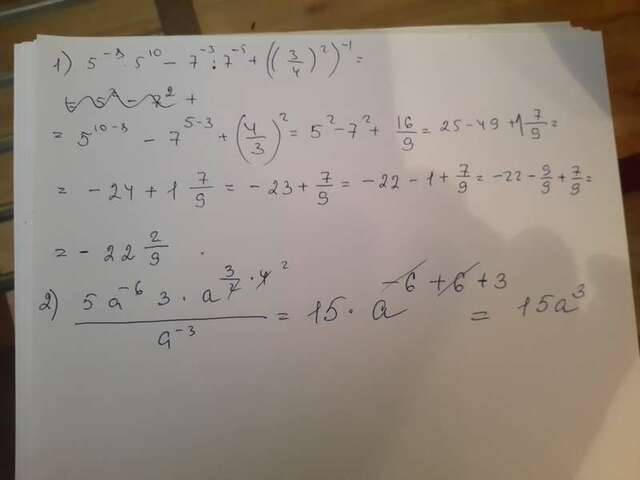 1) 5^{-8} · 5^{10} - 7^{-3} : 7^{-5} + ((3/4)^2)^{-1} =
= 5^{10-8} - 7^{5-3} + (4/3)^2 = 5^2 - 7^2 + 16/9 = 25 - 49 + 1 7/9 =
= - 24 + 1 7/9 = - 23 + 7/9 = - 22 - 1 + 7/9 = - 22 - 9/9 + 7/9 =
= - 22 2/9 .
2) (5 a^{-6} 3 · a^{3/2 · 4 2}) / a^{-3} = 15 · a^{-6 + 6 + 3} = 15a^3